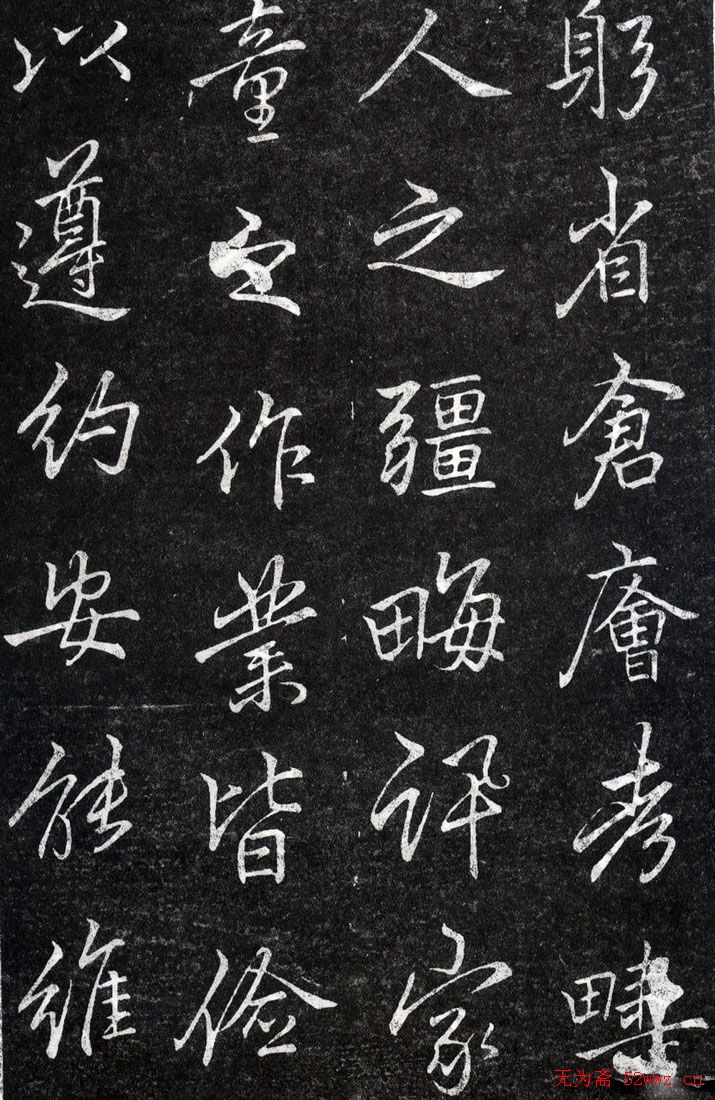 躬省倉廥考疇
人之疆畮訊家
童之作業皆儉
以遵約安能維
无为斋 52wwz.cn